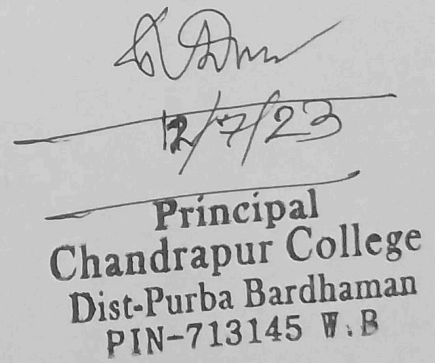 12/7/23
Principal
Chandrapur College
Dist-Purba Bardhaman
PIN-713145 W.B